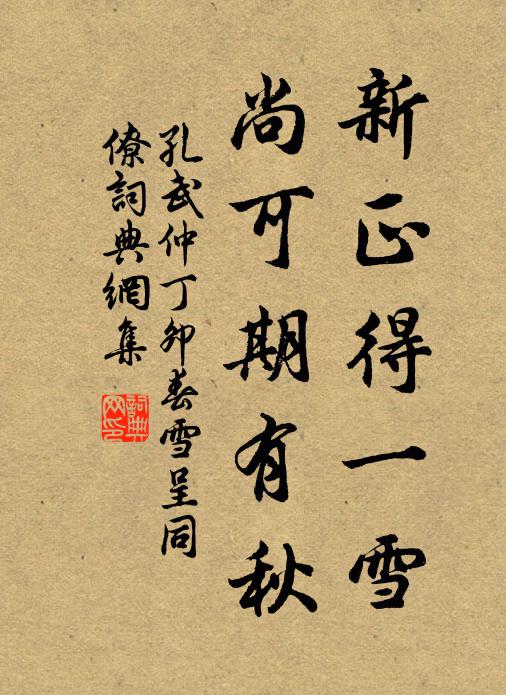 新正得一雪
尚可期有秋
孔武仲丁卯春雪呈同
僚詞典網集
詞典
网印